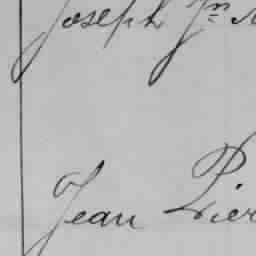 Joseph Jn
Jean Pier